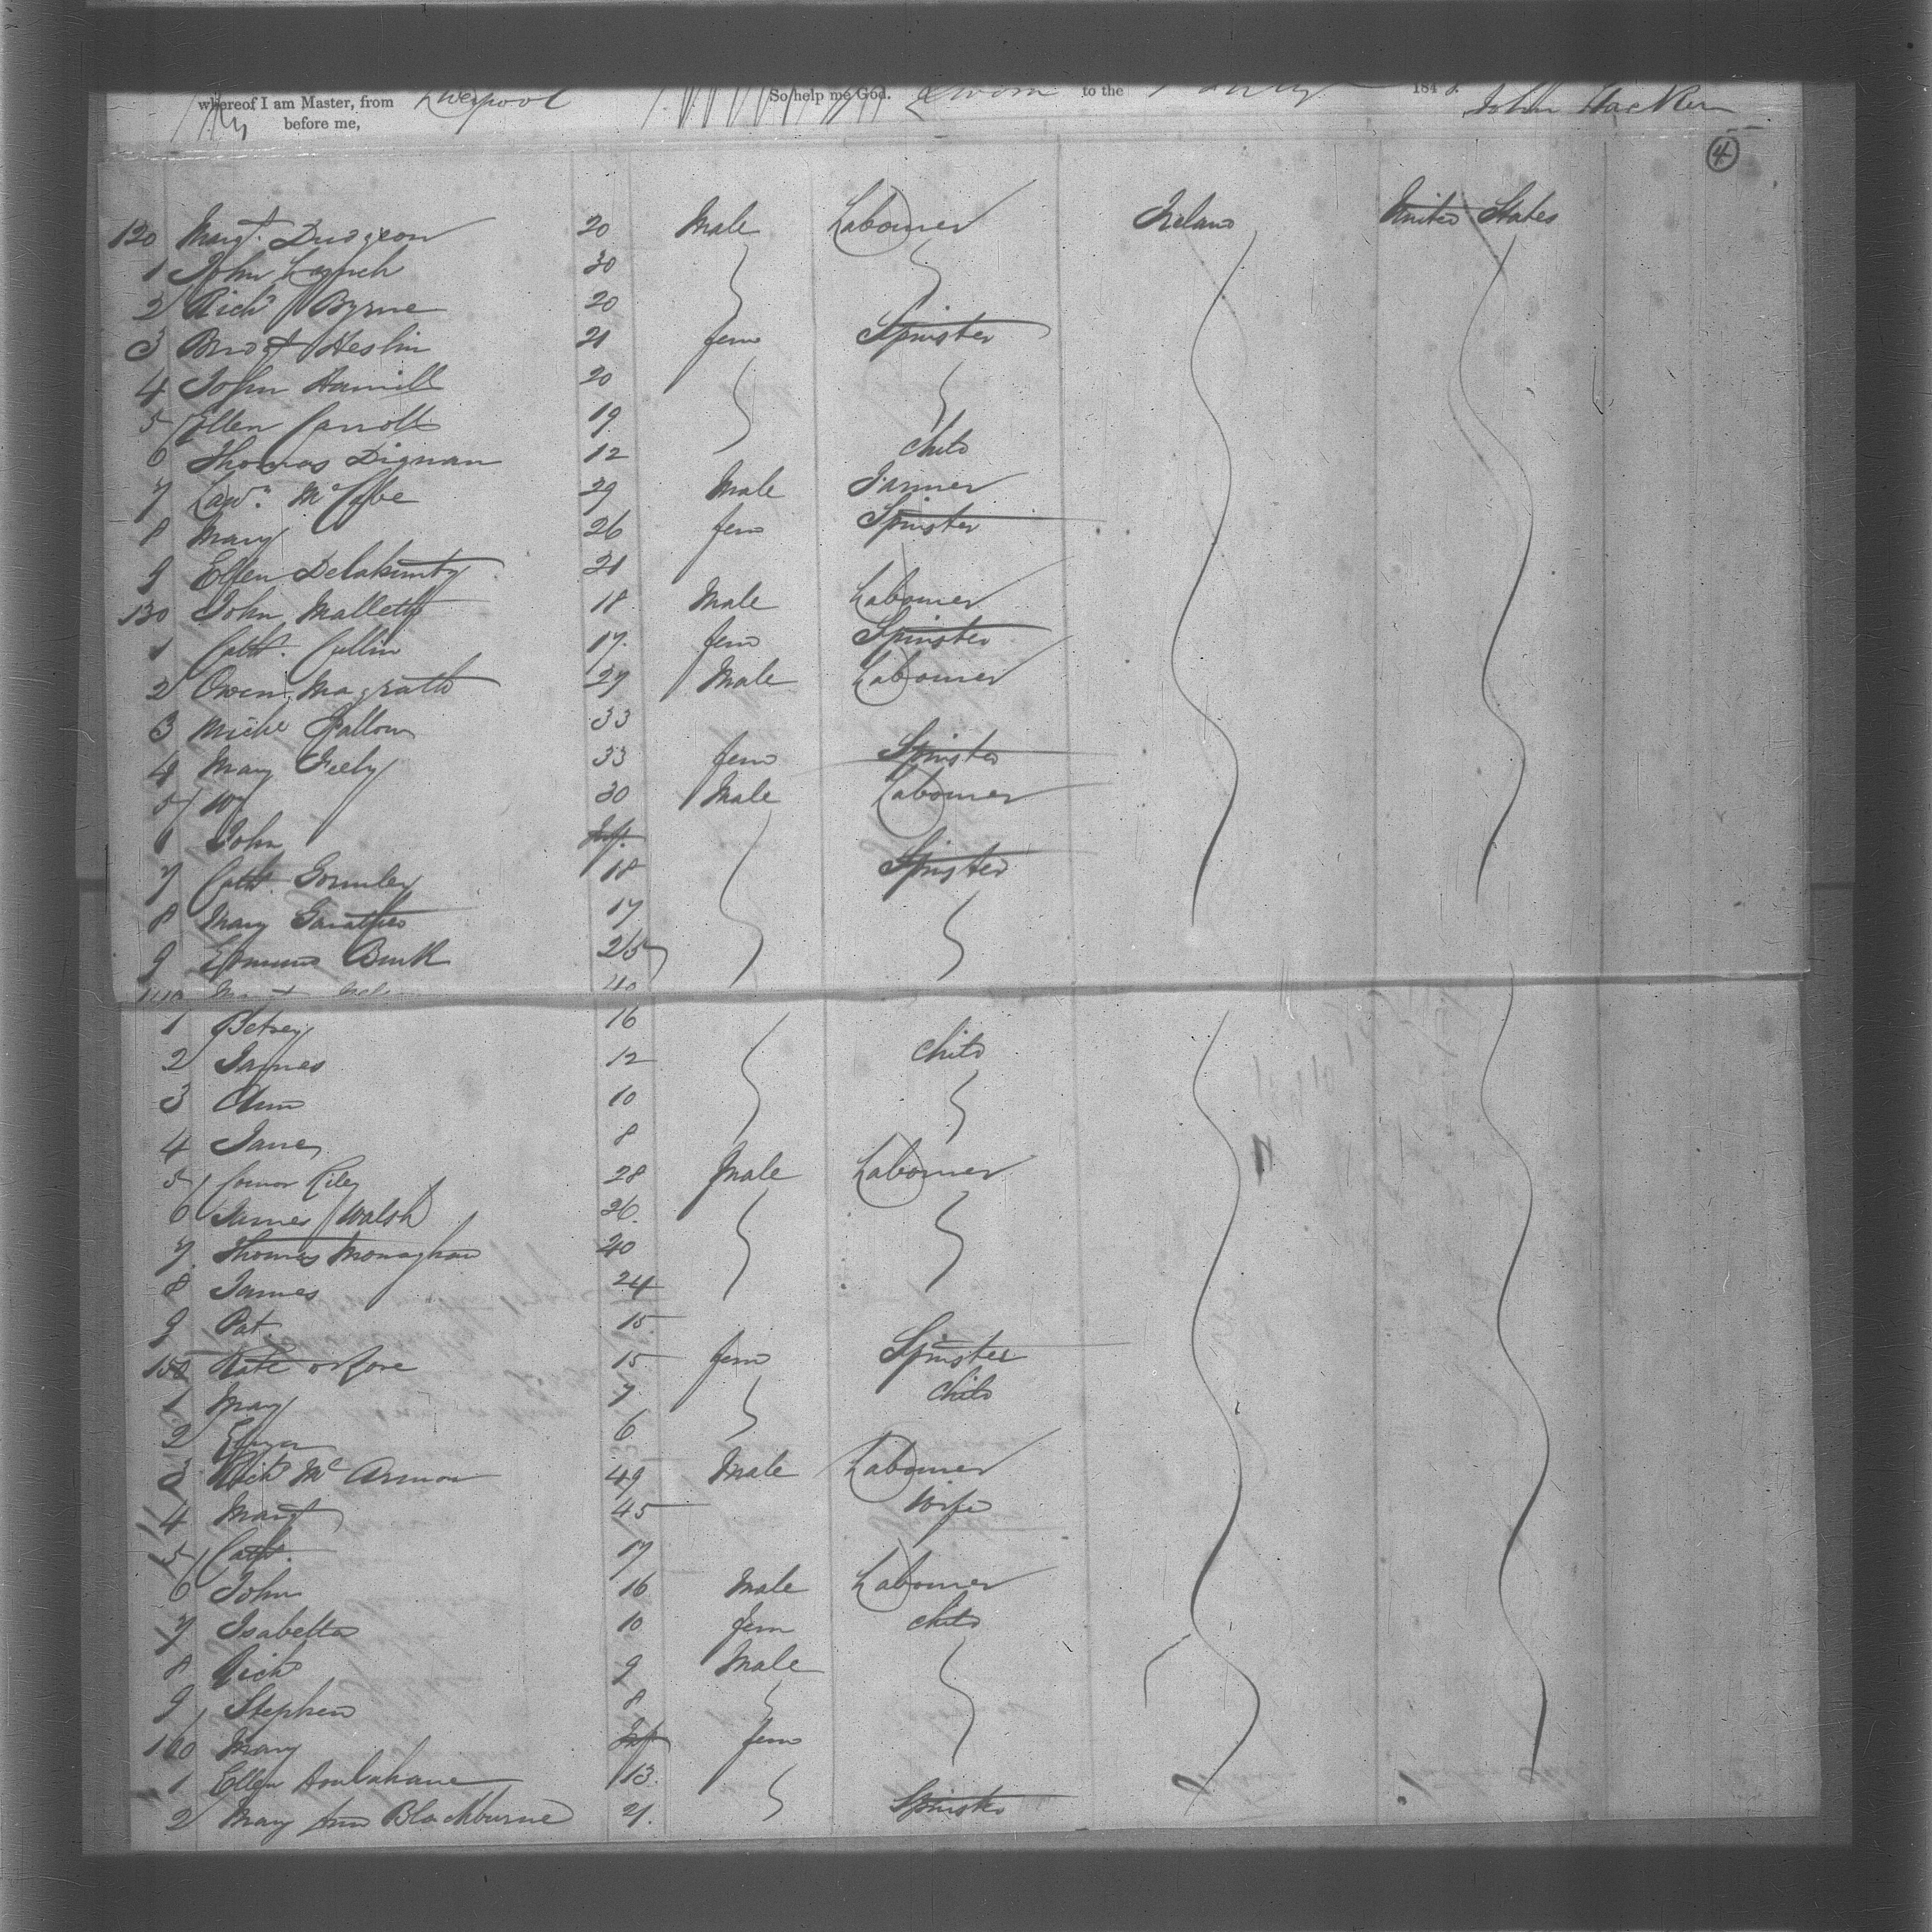 whereof I am Master, from Liverpool So help me God. Sworn to the 184
before me, John Hacker
4
120 Margt. Dudgeon 20 Male Labourer Ireland United States
1 John Lynch 30
2 Richd Byrne 20
3 Bridgt Heslin 21 fem Spinster
4 John Hamill 20
5 Ellen Carroll 19
6 Thomas Dignan 12 Child
7 Lawr. McCabe 29 Male Farmer
8 Mary 26 fem Spinster
9 Ellen Delahunty 21
130 John Mallett 18 Male Labourer
1 Cath. Cullin 17 fem Spinster
2 Owen Magrath 27 Male Labourer
3 Michl Fallon 33
4 Mary Feely 33 fem Spinster
5 Wm 30 Male Labourer
6 John Inf.
7 Cath. Gormley 18 Spinster
8 Mary 17
9 Edmund Burk 25
140 40
1 Betsey 16
2 James 12 Child
3 Ann 10
4 Jane 8
5 Connor Riley 28 Male Labourer
6 James Walsh 26
7 Thomas Monaghan 40
8 James 24
9 Pat 15
150 Kate 15 fem Spinster
1 Mary 7 Child
2 Eliza 6
3 Richd Mc 49 Male Labourer
4 Margt 45 Wife
5 Cath. 17
6 John 16 Male Labourer
7 Isabella 10 fem Child
8 Richd 9 Male
9 Stephen 8
160 Mary Inf fem
1 Ellen Houlahane 13
2 Mary Ann Blackburne 21 Spinster